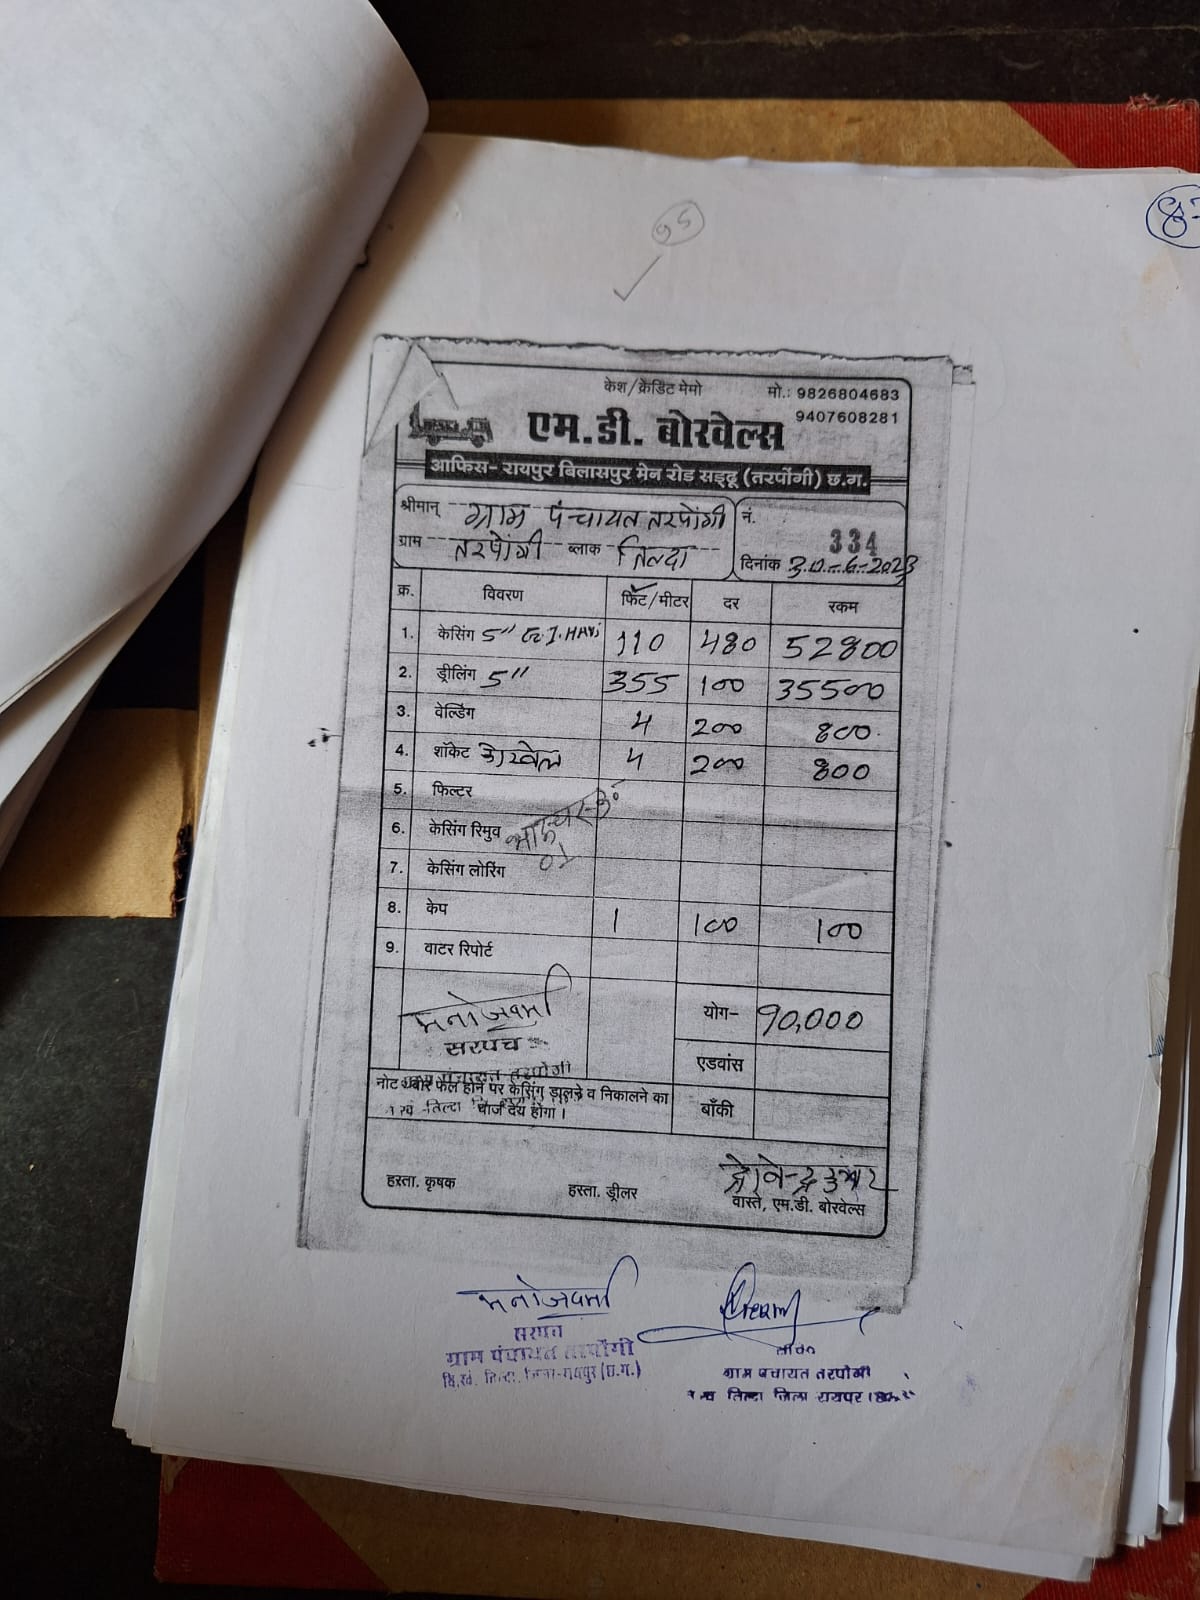 95
केश/क्रेडिट मेमो
मो.: 9826804683
9407608281
एम.डी. बोरवेल्स
आफिस- रायपुर बिलासपुर मेन रोड सड्ढू (तरपोंगी) छ.ग.
श्रीमान् ग्राम पंचायत तरपोंगी
ग्राम तरपोंगी ब्लाक तिल्दा
नं. 334
दिनांक 30-6-2023
क्र. विवरण फिट/मीटर दर रकम
1. केसिंग 5" 110 480 52800
2. ड्रीलिंग 5" 355 100 35500
3. वेल्डिंग 4 200 800
4. शॉकेट 4 200 800
5. फिल्टर
6. केसिंग रिमुव
01
7. केसिंग लोरिंग
8. केप 1 100 100
9. वाटर रिपोर्ट
योग- 90,000
मनोज वर्मा
सरपंच
एडवांस
नोट बोर फेल होने पर केसिंग डालने व निकालने का
चार्ज देय होगा ।
बाँकी
हस्ता. कृषक
हस्ता. ड्रीलर
वास्ते, एम.डी. बोरवेल्स
मनोज वर्मा
सरपंच
ग्राम पंचायत तरपोंगी
वि.खं. तिल्दा, जिला-रायपुर (छ.ग.)
ग्राम पंचायत तरपोंगी
तिल्दा जिला रायपुर